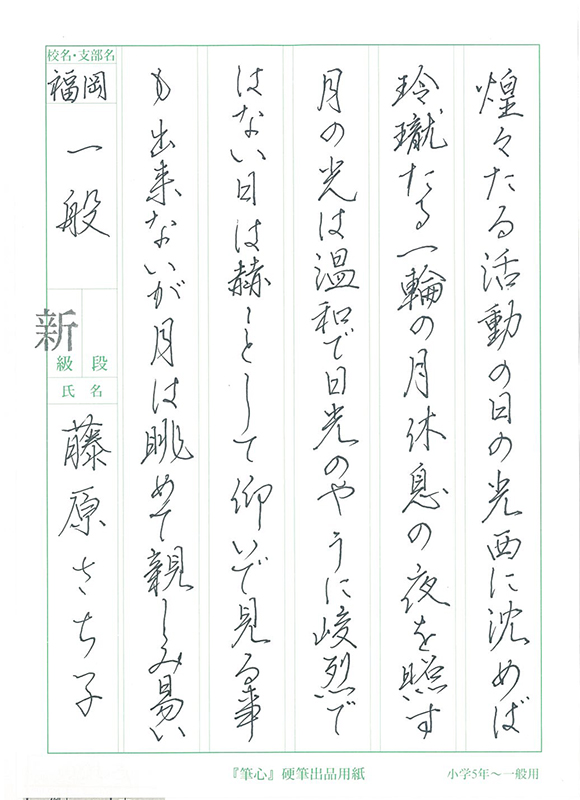 煌々たる活動の日の光西に沈めば
玲瓏たる一輪の月休息の夜を照す
月の光は温和で日光のやうに峻烈で
はない日は赫々として仰いで見る事
も出来ないが月は眺めて親しみ易い
校名・支部名
福岡
一般
新
級 段
氏 名
藤原さち子
『筆心』硬筆出品用紙
小学5年～一般用